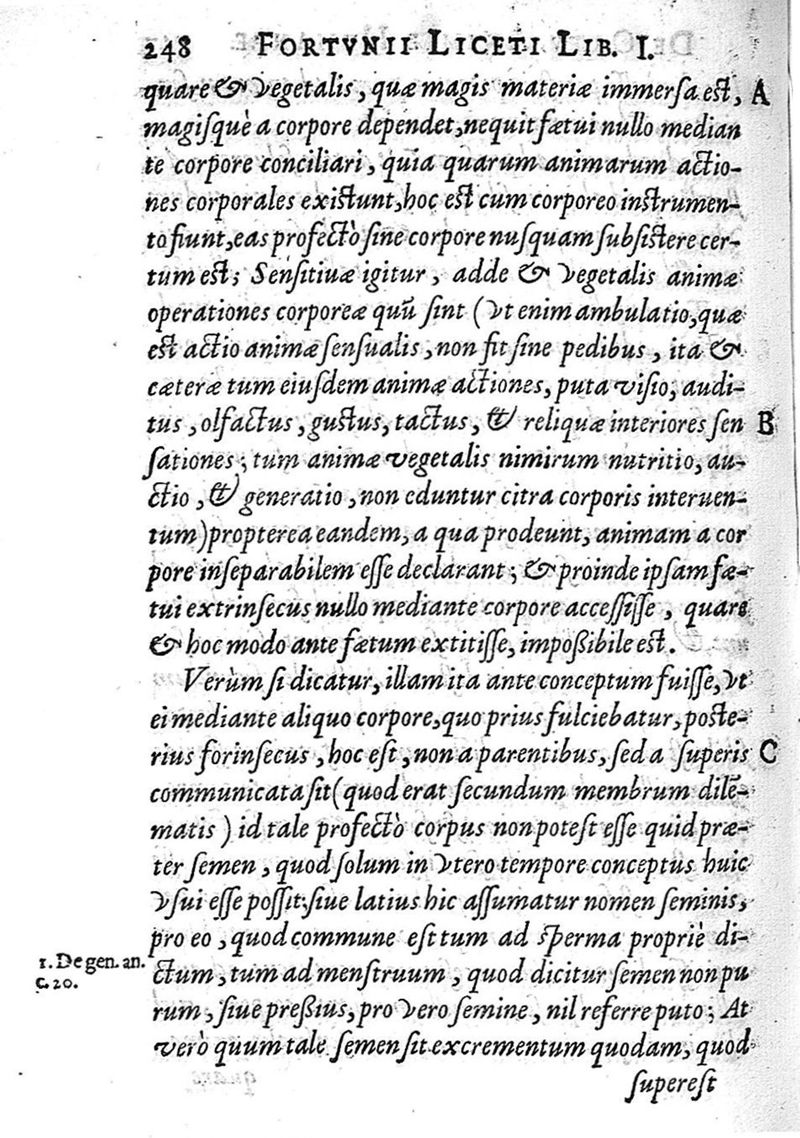 248 FORTVNII LICETI LIB. I.
quare & vegetalis, quæ magis materiæ immersa est, A
magisquè a corpore dependet, nequit fætui nullo median
te corpore conciliari, quia quarum animarum actio-
nes corporales existunt, hoc est cum corporeo instrumen-
to fiunt, eas profectò sine corpore nusquam subsistere cer-
tum est; Sensitiuæ igitur, adde & vegetalis animæ
operationes corporeæ quū sint (vt enim ambulatio, quæ
est actio animæ sensualis, non fit sine pedibus, ita &
cæteræ tum eiusdem animæ actiones, puta visio, audi-
tus, olfactus, gustus, tactus, & reliquæ interiores sen B
sationes; tum animæ vegetalis nimirum nutritio, au-
ctio, & generatio, non eduntur citra corporis interuen-
tum) propterea eandem, a qua prodeunt, animam a cor
pore inseparabilem esse declarant; & proinde ipsam fæ-
tui extrinsecus nullo mediante corpore accessisse, quare
& hoc modo ante fætum extitisse, impoßibile est.
Verùm si dicatur, illam ita ante conceptum fuisse, vt
ei mediante aliquo corpore, quo prius fulciebatur, poste-
rius forinsecus, hoc est, non a parentibus, sed a superis C
communicata sit (quod erat secundum membrum dilē-
matis) id tale profectò corpus non potest esse quid præ-
ter semen, quod solum in vtero tempore conceptus huic
vsui esse possit; siue latius hic assumatur nomen seminis,
pro eo, quod commune est tum ad sperma propriè di-
1. De gen. an.
c. 20.
ctum, tum ad menstruum, quod dicitur semen non pu
rum, siue preßius, pro vero semine, nil referre puto; At
verò quum tale semen sit excrementum quodam, quod
superest